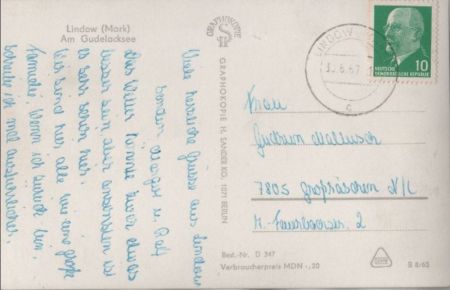 Lindow (Mark)
Am Gudelacksee
Viele herzliche Grüße aus Lindow
senden Margot u. Ralf
Das Wetter könnte zwar etwas
besser sein aber ansonsten ist
es sehr schön hier.
Wir sind hier alle wie eine große
Familie. Wenn ich zurück bin,
schreibe ich mal ausführlicher.
GRAPHOKOPIE
GRAPHOKOPIE H. SANDER KG. 1071 BERLIN
LINDOW
6.67
c
DEUTSCHE
DEMOKRATISCHE REPUBLIK
10
Frau
Gudrun
7805 Großräschen N/L
2
Best.-Nr. D 347
Verbraucherpreis MDN -,20
B 8/65